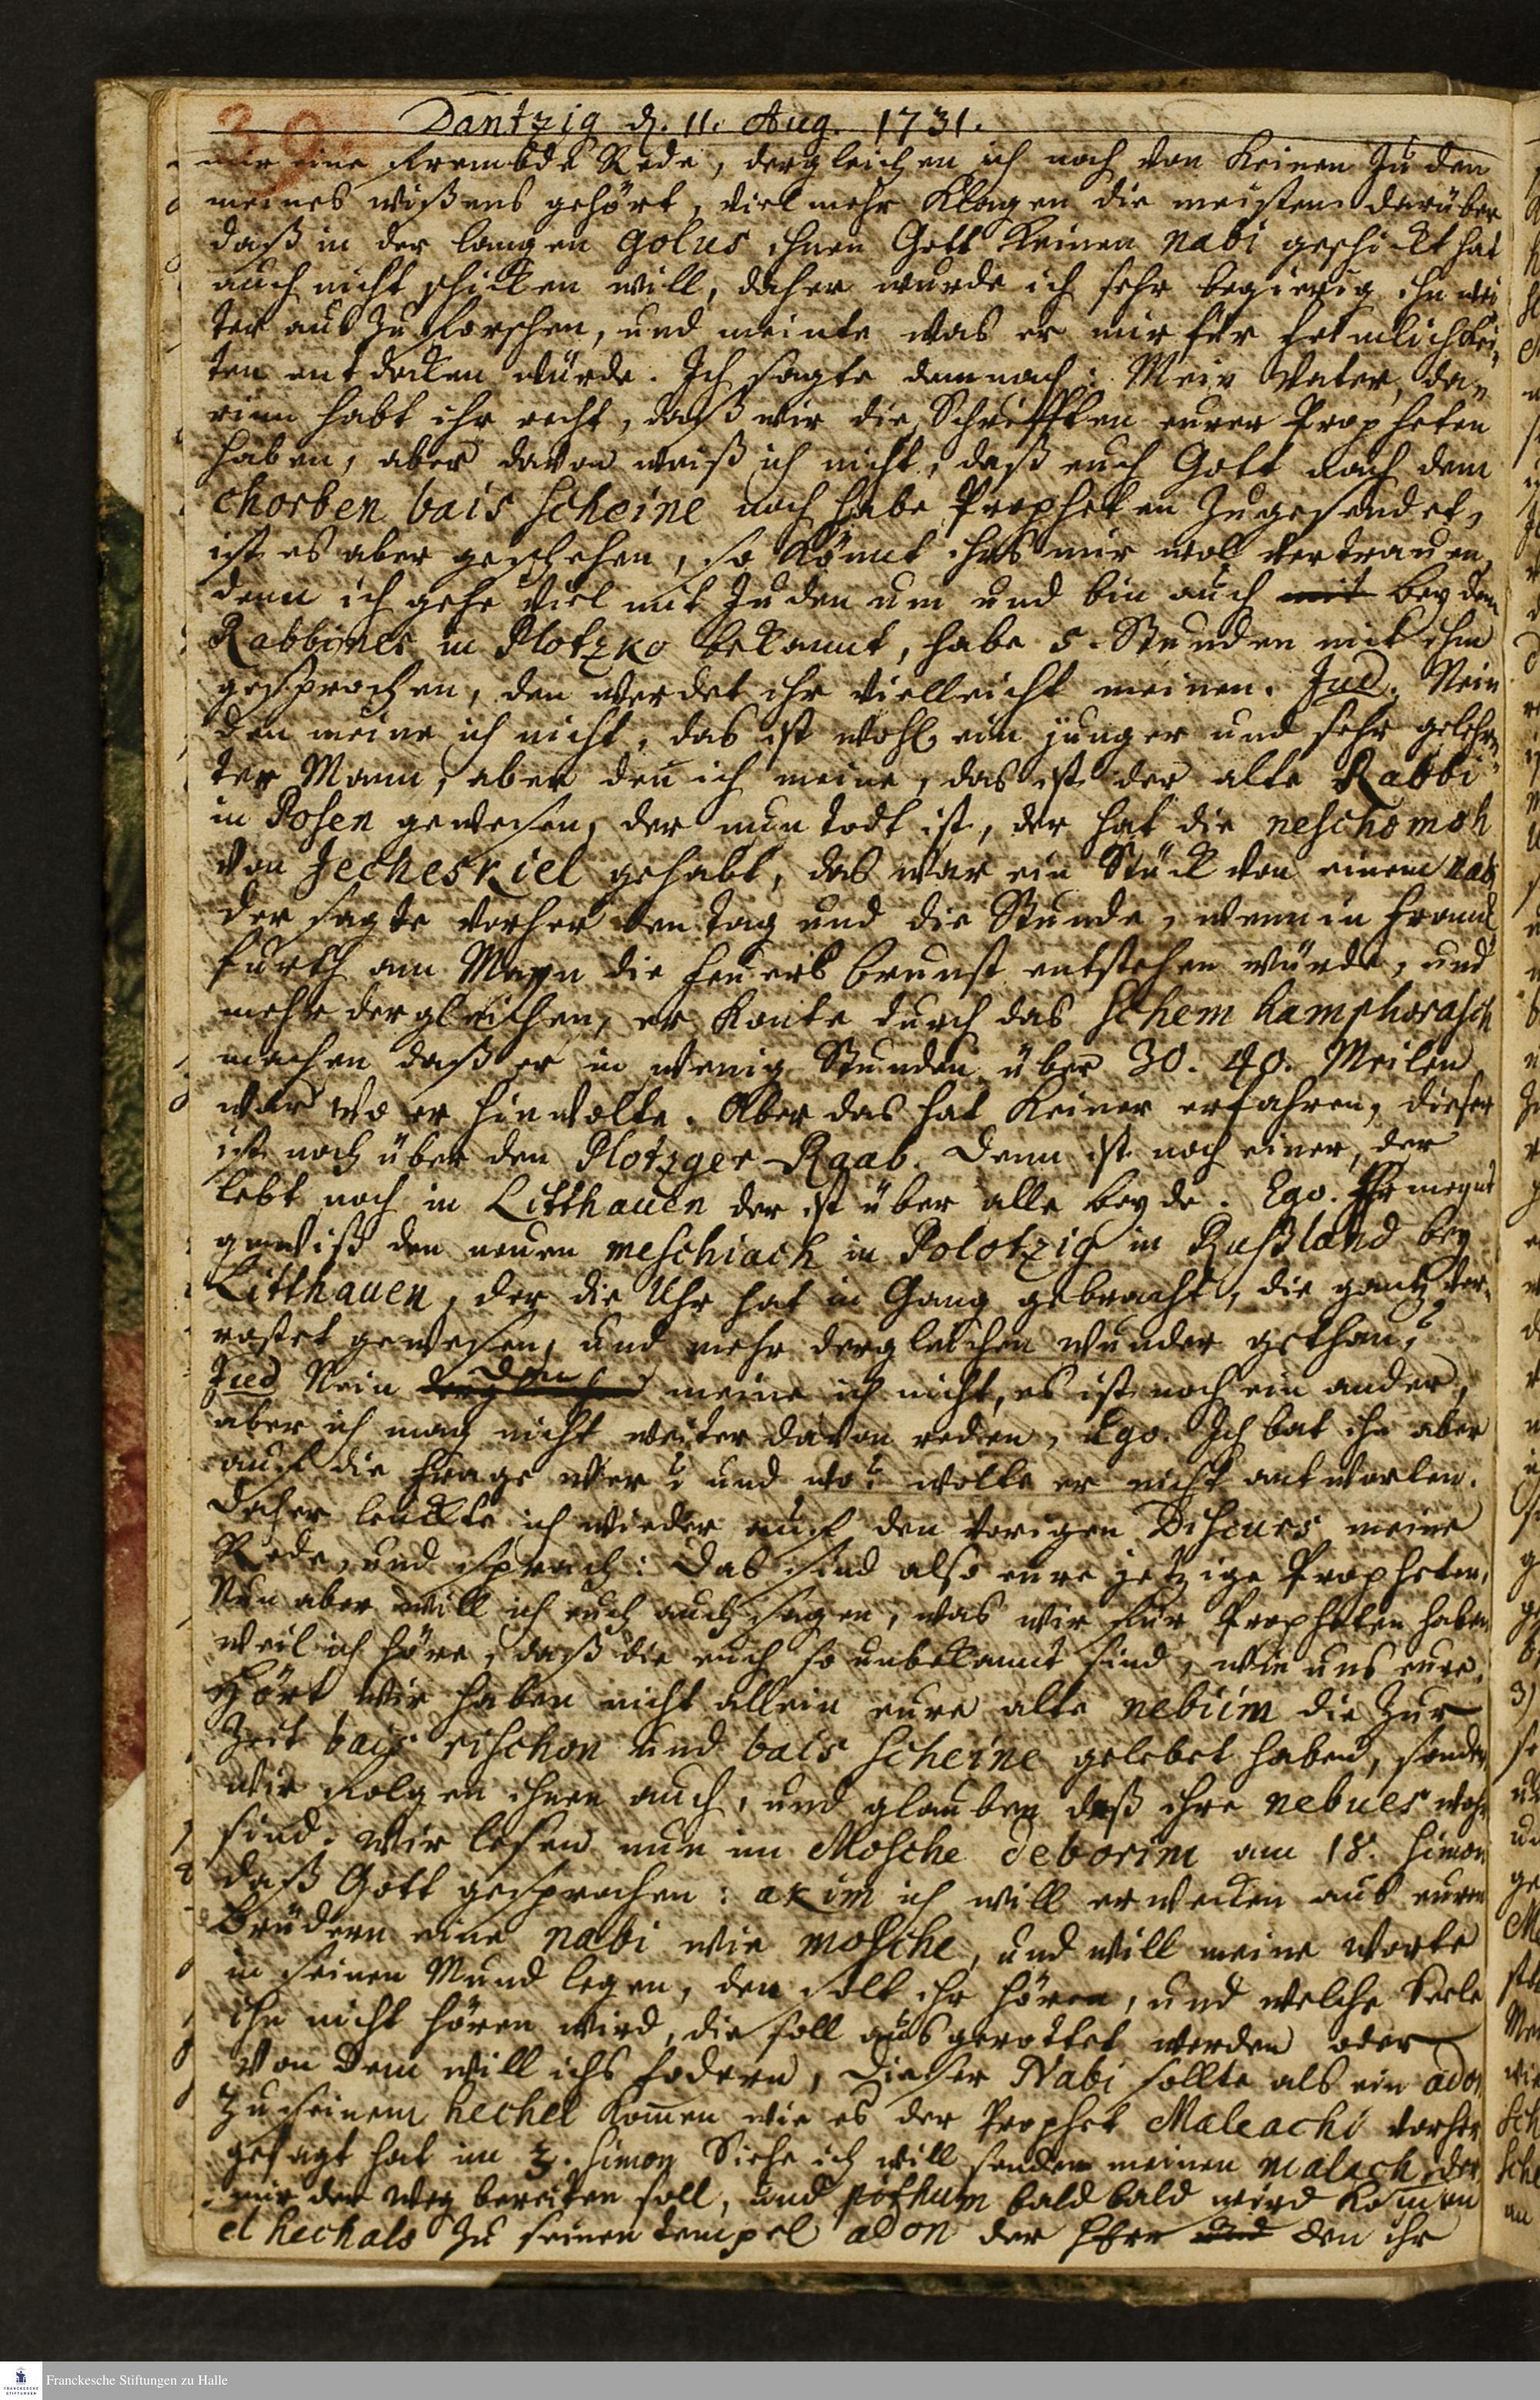 39
Dantzig d. 11. Aug. 1731.
mir eine frembde Rede, dergleichen ich noch von keinen Juden
meines wißens gehört, vielmehr klagen die meisten darüber
daß in der langen golus ihnen Gott keinen nabi geschickt hat
auch nicht schicken will, daher wurde ich sehr begierig ihn wei
ter auszuforschen, und meinte was er mir für heimlichkei,
ten entdecken würde. Ich sagte demnach: Mein Vater, da,
rinn habt ihr recht, daß wir die Schrifften eurer Propheten
haben, aber davon weiß ich nicht, daß euch Gott nach dem
chorben bais scheine noch habe Propheten zugesendet,
ist es aber geschehen, so könnt ihrs mir wol vertrauen,
denn ich gehe viel mit Juden um und bin auch mit bey dem
Rabbiner in Plotzko bekannt, habe 5. Stunden mit ihm
gesprochen, den werdet ihr vielleicht meinen. Jud. Nein
den meine ich nicht, das ist wohl ein junger und sehr gelehr,
ter Mann, aber den ich meine, das ist der alte Rabbi
in Posen gewesen, der nun todt ist, der hat die neschomoh
von Jecheskiel gehabt, das war ein Stück von einem nabi
der sagte vorher den tag und die Stunde, wenn in Franck
furth am Mayn die feuersbrunst entstehen würde, und
mehr dergleichen, er konte durch das Schem hamphorasch
machen daß er in wenig Stunden über 30. 40. Meilen
war wo er hinwolte. Aber das hat keiner erfahren, dieser
ist noch über den Plotzger Raab. Denn ist noch einer, der
lebt noch in Litthauen der ist über alle beyde. Ego. Ihr meynt
gewiß den neuen meschiach in Polotzig in Rußland bey
Litthauen, der die Uhr hat in Gang gebracht, die gantz ver,
rostet gewesen, und mehr dergleichen wunder gethan?
Jud Nein den meine ich nicht, es ist noch ein ander,
aber ich mag nicht weiter davon reden, Ego. Ich bat ihn aber
auf die frage wer? und wo? wolte er nicht antworten.
Daher lenckte ich wieder auf den vorigen Discurs meine
Rede, und sprach: Das sind also eure jetzige Propheten,
Nun aber will ich euch auch sagen, was wir für Propheten haben
weil ich höre, daß die euch so unbekannt sind, wie uns eure.
Hört wir haben nicht allein eure alte nebiim die zur
Zeit bais rischon und bais scheine gelebet haben, sondern
wir folgen ihnen auch, und glauben daß ihre nebues wahr
sind. Wir lesen nun im Mosche deborim am 18. Simon
daß Gott gesprochen: akim ich will erwecken aus euren
Brüdern eine nabi wie mosche, und will meine worte
in seinen Mund legen, den solt ihr hören, und welche Seele
ihn nicht hören wird, die soll ausgerottet werden oder
von dem will ichs fodern, Dieser Nabi sollte als ein adon
zu seinem hechel komen wie es der Prophet Maleachi vorher
gesagt hat im 3. Simon Siehe ich will senden meinen malach, der
mir den weg bereiten soll, und pithum bald bald wird komen
el hechalo zu seinen tempel adon der Herr und den ihr
Franckesche Stiftungen zu Halle